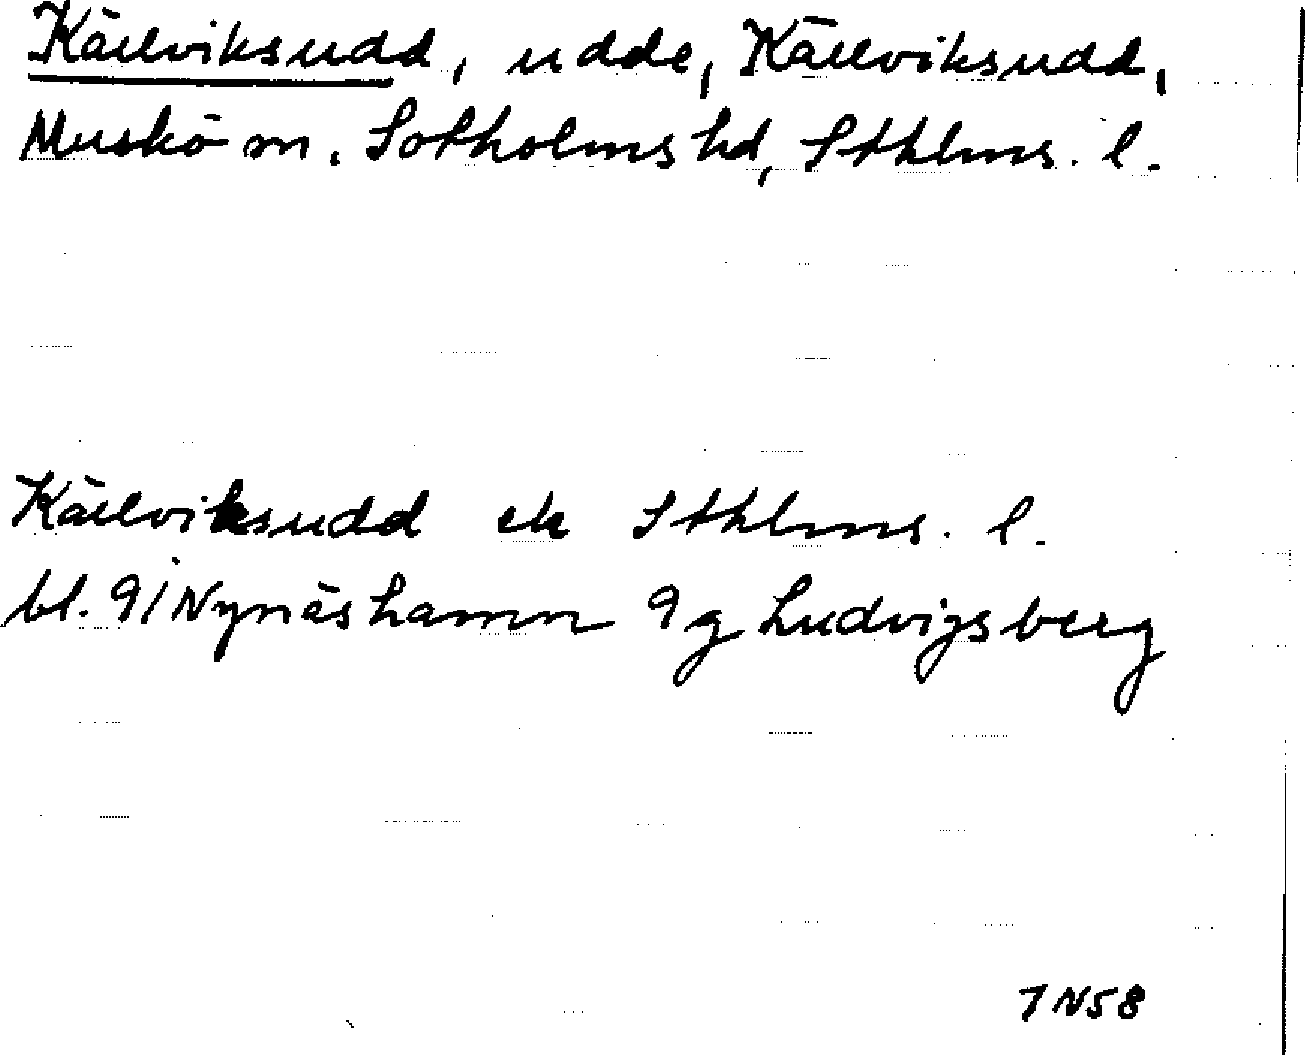 Källviksudd, udde, Källviksudd,
Muskö sn, Sotholms hd, Sthlms. l.
Källviksudd ek Sthlms. l.
bl. 91 Nynäshamn 9g Ludvigsberg
7N58